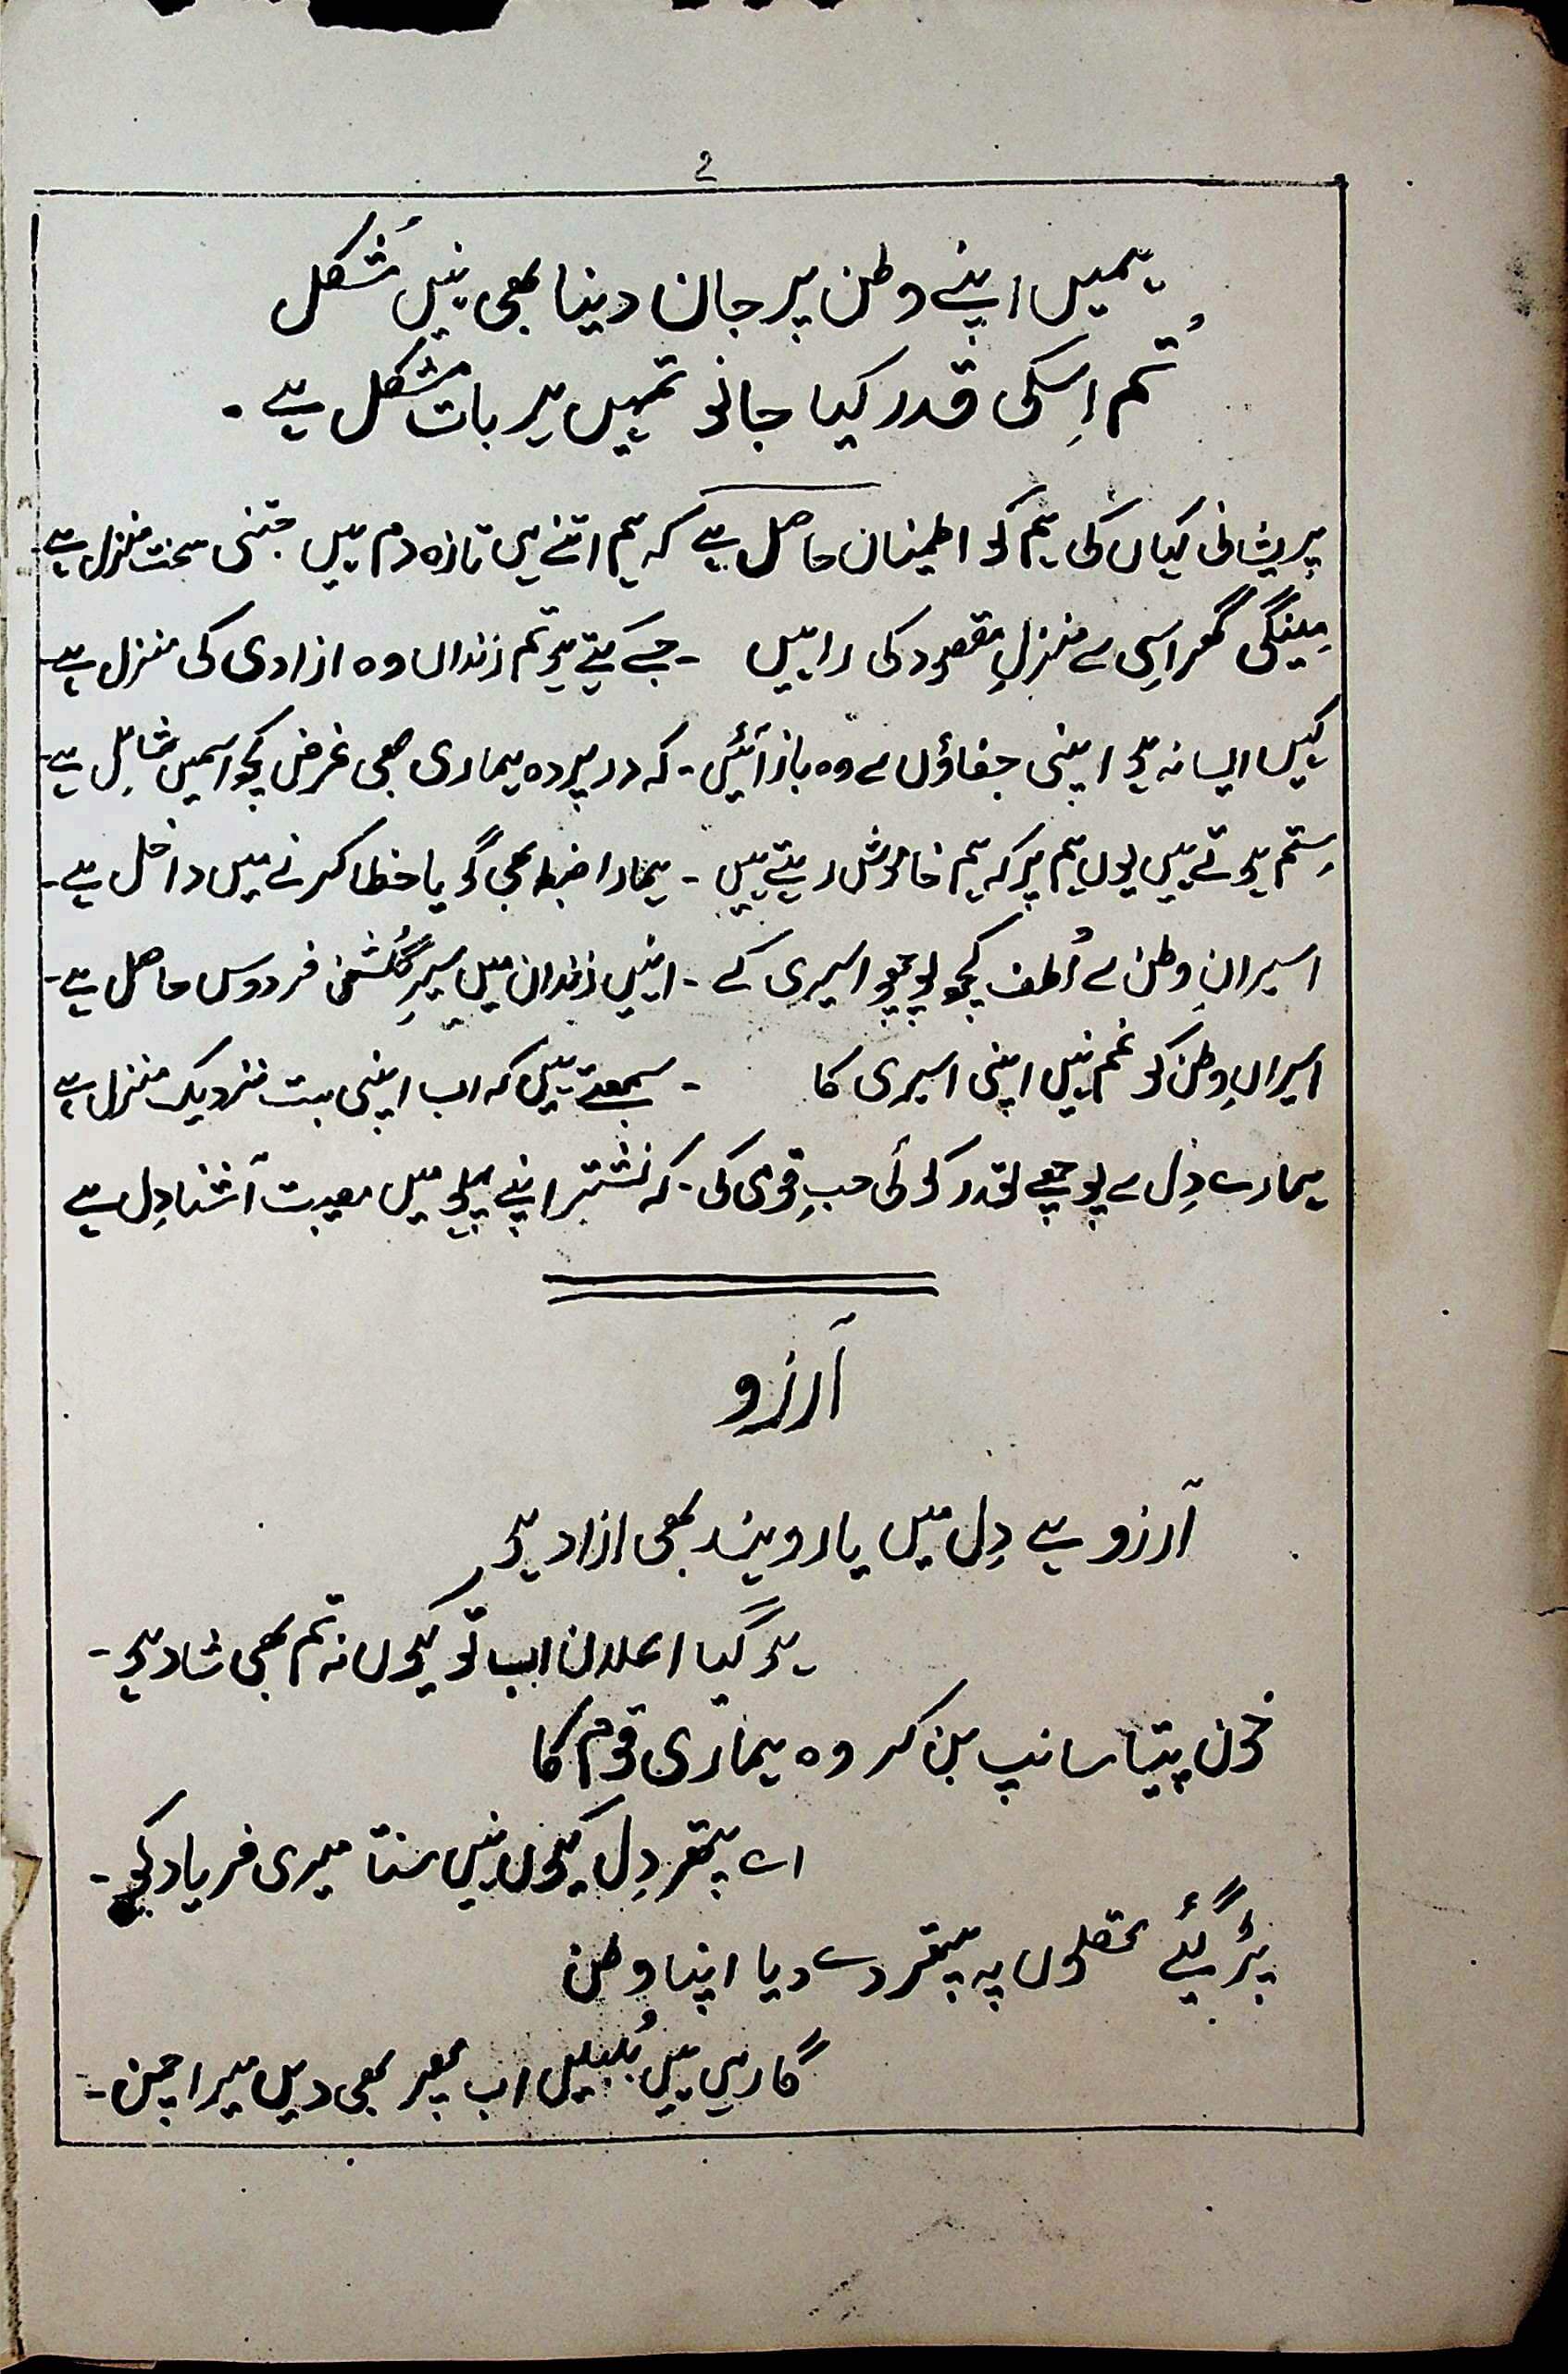 2
ہمیں اپنے وطن پر جان دینا بھی نہیں مُشکل
تُم اِسکی قدر کیا جانو تمہیں یہ بات مشکل ہے ۔
پریشانی کہاں کی ہم کو اطمینان حاصل ہے کہ ہم اتنے ہی تازہ دم ہیں جتنی سخت منزل ہے۔
مِلینگی گھر اسِی سے منزلِ مقصود کی راہیں ۔ جسے کہتے ہو تم زنداں وہ ازادی کی منزل ہے۔
کہیں ایسا نہ ہو اپنی جفاؤں سے وہ باز آئیں ۔ کہ در پردہ ہماری بھی غرض کچھ اسمیں شامِل ہے۔
ستم ہوتے ہیں یوں ہم پر کہ ہم خاموش رہتے ہیں ۔ ہمارا ضبط بھی گویا خطا کرنے میں داخل ہے۔
اسیرانِ وطن سے لُطف کچھ پوچھو اسیری کے ۔ انہیں زندان میں سیرِ گُلشنِ فردوس حاصل ہے۔
اسیرانِ وطن کو غم نہیں اپنی اسیری کا ۔ سمجھتے ہیں کہ اب اپنی بہت نزدیک منزل ہے
ہمارے دِل سے پوچھے قدر کوئی حبِ قومی کی ۔ کہ نشتر اپنے پہلو میں مصیبت آشنا دِل ہے
آرزو
آرزو ہے دِل میں یارو ہند بھی ازاد ہو
ہو گیا اعلان اب تو کیوں نہ تم بھی شاد ہو ۔
خون پیتا سانپ بن کر وہ ہماری قوم کا
اے پتھر دِل کیوں نہیں سنتا میری فریاد کو ۔
پڑ گئے عقلوں پہ پتھر دے دیا اپنا وطن
گا رہی ہیں بُلبلیں اب پھر بھی دہیں میرا چمن ۔